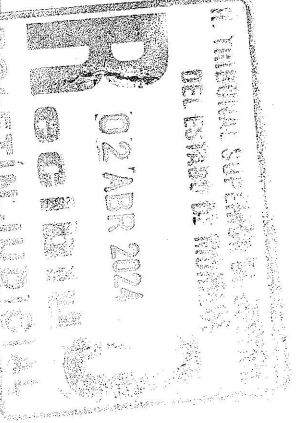 H. TRIBUNAL SUPERIOR DE
DEL ESTADO DE
02 ABR 2024
Recibido
BOLETIN JUDICIAL